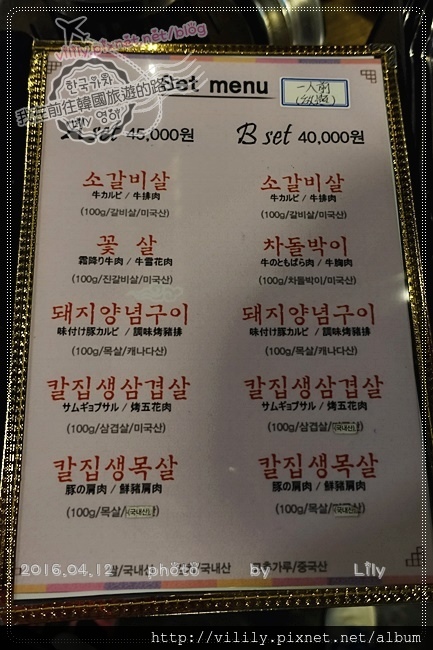 vilily.pixnet.net/blog
한국위휘
我在前往韓國旅遊的路
Lily 영하
Set menu
一人前
A set 45,000원
B set 40,000원
소갈비살
牛カルビ / 牛排肉
(100g/갈비살/미국산)
꽃 살
霜降り牛肉 / 牛雪花肉
(100g/진갈비살/미국산)
돼지양념구이
味付け豚カルビ / 調味烤豬排
(100g/목살/캐나다산)
칼집생삼겹살
サムギョプサル / 烤五花肉
(100g/삼겹살/미국산)
칼집생목살
豚の肩肉 / 鮮豬肩肉
(100g/목살/국내산)
소갈비살
牛カルビ / 牛排肉
(100g/갈비살/미국산)
차돌박이
牛のともばら肉 / 牛胸肉
(100g/차돌박이/미국산)
돼지양념구이
味付け豚カルビ / 調味烤豬排
(100g/목살/캐나다산)
칼집생삼겹살
サムギョプサル / 烤五花肉
(100g/삼겹살/국내산)
칼집생목살
豚の肩肉 / 鮮豬肩肉
(100g/목살/국내산)
쌀/국내산 국내산 고춧가루/중국산
2016.04.12 photo by Lily
http://vilily.pixnet.net/album